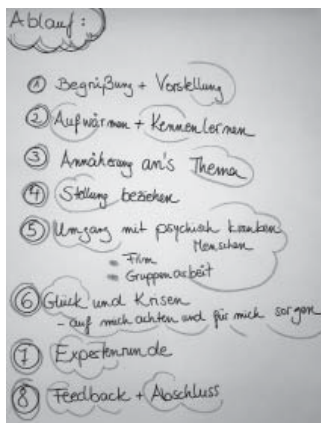 Ablauf:
① Begrüßung + Vorstellung
② Aufwärmen + Kennenlernen
③ Annäherung an's Thema
④ Stellung beziehen
⑤ Umgang mit psychisch kranken
Menschen
- Film
- Gruppenarbeit
⑥ Glück und Krisen
- auf mich achten und für mich sorgen
⑦ Expertenrunde
⑧ Feedback + Abschluss